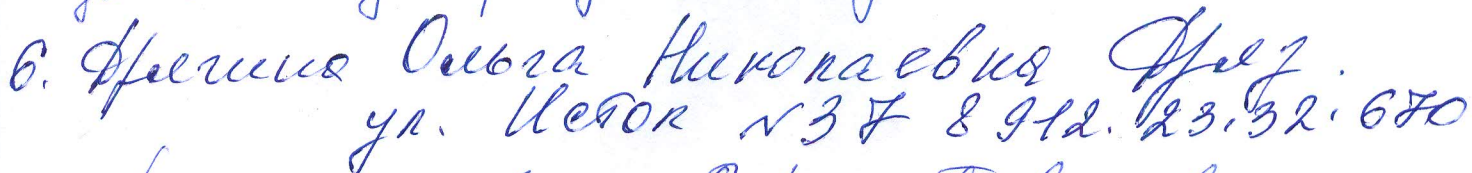 6. Дрягина Ольга Николаевна Дряг.
ул. Исток № 37 8 912. 23.32. 670